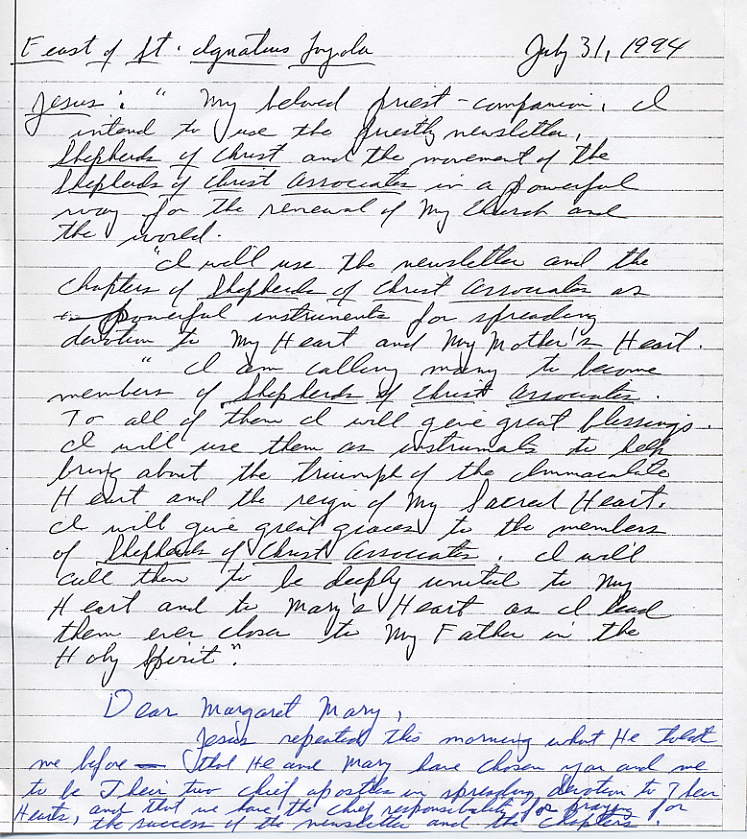 Feast of St. Ignatius Loyola July 31, 1994
Jesus: "My beloved priest-companion, I
intend to use the priestly newsletter,
Shepherds of Christ and the movement of the
Shepherds of Christ Associates in a powerful
way for the renewal of My Church and
the world.
"I will use the newsletter and the
chapters of Shepherds of Christ Associates as
powerful instruments for spreading
devotion to My Heart and My Mother's Heart.
"I am calling many to become
members of Shepherds of Christ Associates.
To all of them I will give great blessings.
I will use them as instruments to help
bring about the triumph of the Immaculate
Heart and the reign of My Sacred Heart.
I will give great graces to the members
of Shepherds of Christ Associates. I will
call them to be deeply united to My
Heart and to Mary's Heart as I lead
them ever closer to My Father in the
Holy Spirit".
Dear Margaret Mary,
Jesus repeated this morning what He told
me before — that He and Mary have chosen you and me
to be Their two chief apostles in spreading devotion to Their
Hearts, and that we have the chief responsibility for praying for
the success of the newsletter and the chapters.